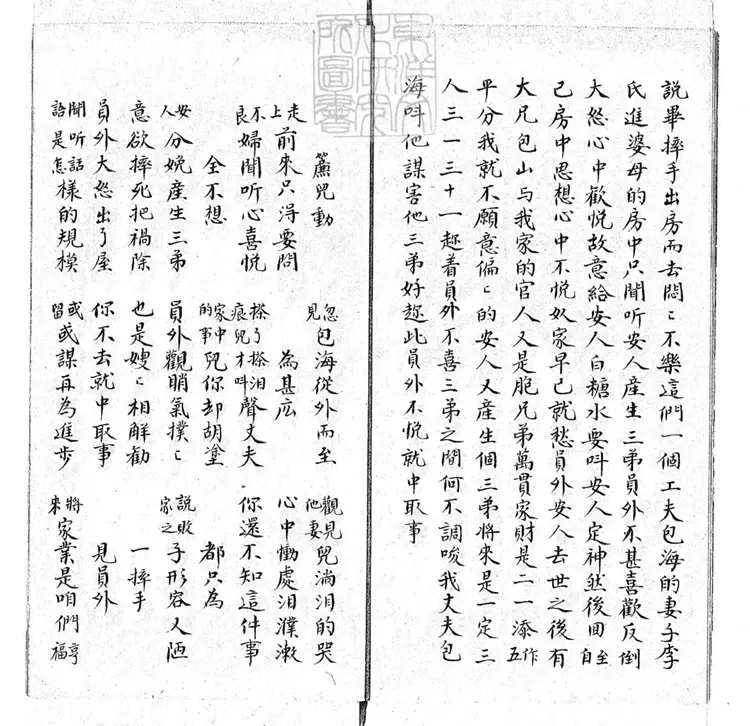 東洋文化研究所圖書
說畢摔手出房而去悶〻不樂這們一個工夫包海的妻子李
氏進婆母的房中只聞听安人產生三弟員外不甚喜歡反倒
大怒心中歡悅故意給安人白糖水要叫安人定神然後回至自
己房中思想心中不悅奴家早已就愁員外安人去世之後有
大兄包山与我家的官人又是胞兄弟萬貫家財是二一添作五
平分我就不願意偏〻的安人又產生個三弟將來是一定三
人三一三十一趂着員外不喜三弟之間何不調唆我丈夫包
海叫他謀害他三弟好趂此員外不悅就中取事
簾兒動 忽見包海從外而至 觀見他妻兒淌泪的哭
走上前來只得要問 為甚庅 心中慟處泪濮漱
不良婦聞听心喜悅 搽了搽泪痕兒才叫聲丈夫 你還不知這件事
全不想 家中的事兒你却胡塗 都只為
安人分娩產生三弟 員外觀睄氣撲〻 說敗家之子形容又陋
意欲摔死把禍除 也是嫂〻相解勸 一摔手
員外大怒出了屋 你不去就中取事 見員外
聞听話語是怎樣的規模 或留或謀再為進步 將來家業是咱們享福